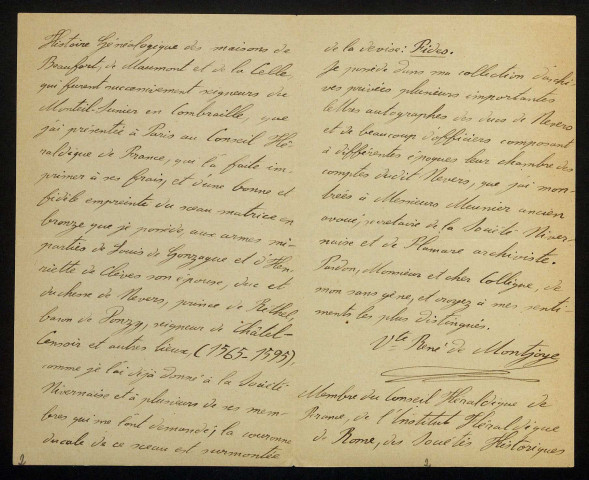 Histoire Généalogique des maisons de
Beaufort, de Maumont et de la Celle
qui furent successivement seigneurs du
Monteil-Junier en Combraille, que
j'ai présentée à Paris au Conseil Hé-
raldique de France, qui l'a faite im-
primer à ses frais, et d'une bonne et
fidèle empreinte du sceau matrice en
bronze que je possède, aux armes mi-
parties de Louis de Gonzague et d'Hen-
riette de Clèves son épouse, duc et
duchesse de Nevers, prince de Rethel,
baron de Donzy, seigneur de Châtel-
Censoir et autres lieux, (1565-1595),
comme je l'ai déjà donné à la Société
Nivernaise et à plusieurs de ses mem-
bres qui me l'ont demandé; la couronne
ducale de ce sceau est surmontée
2
de la devise: Fides.
Je possède dans ma collection d'archi-
ves privées plusieurs importantes
lettres autographes des ducs de Nevers
et de beaucoup d'officiers composant
à différentes époques leur chambre des
comptes dudit Nevers, que j'ai mon-
trées à Messieurs Meunier ancien
avoué, secrétaire de la Société Niver-
naise et de Flamare archiviste.
Pardon, Monsieur et cher Collègue, de
mon sans gêne, et croyez à mes senti-
ments les plus distingués.
Vte René de Montjoye
Membre du Conseil Héraldique de
France, de l'Institut Héraldique
de Rome, des Sociétés Historiques
2